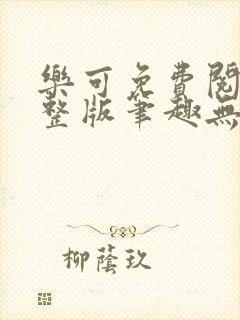 樂可免費閱
整版筆趣無
柳蔭玖